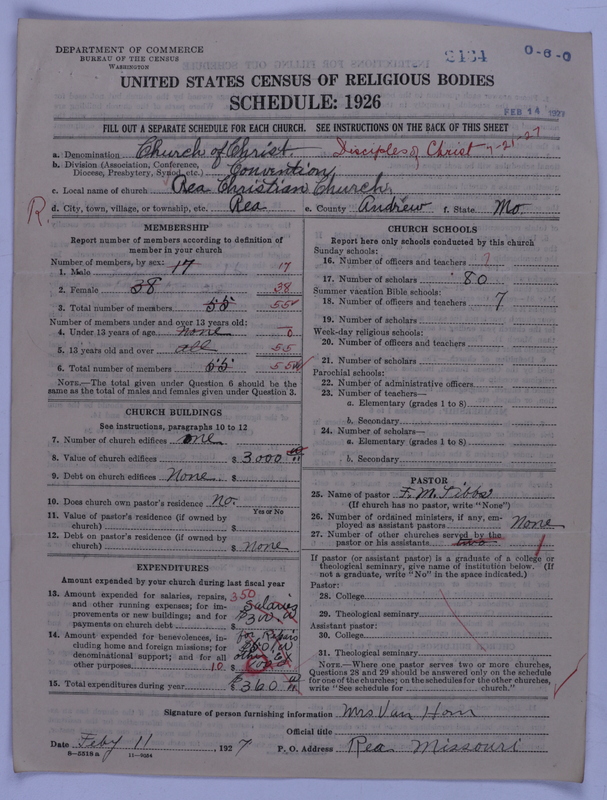 DEPARTMENT OF COMMERCE
BUREAU OF THE CENSUS
WASHINGTON
2134
0-6-0
UNITED STATES CENSUS OF RELIGIOUS BODIES
SCHEDULE: 1926
FEB 14 1927
FILL OUT A SEPARATE SCHEDULE FOR EACH CHURCH. SEE INSTRUCTIONS ON THE BACK OF THIS SHEET
a. Denomination Church of Christ Disciples of Christ 7-21-27
b. Division (Association, Conference, Diocese, Presbytery, Synod, etc.) Convention
c. Local name of church Rea Christian Church
R
d. City, town, village, or township, etc. Rea e. County Andrew f. State Mo.
MEMBERSHIP
Report number of members according to definition of
member in your church
Number of members, by sex:
1. Male 17 17
2. Female 38 38
3. Total number of members 55 55
Number of members under and over 13 years old:
4. Under 13 years of age none 0
5. 13 years old and over all 55
6. Total number of members 55 55
NOTE.—The total given under Question 6 should be the
same as the total of males and females given under Question 3.
CHURCH BUILDINGS
See instructions, paragraphs 10 to 12
7. Number of church edifices one
8. Value of church edifices $ 3000 00
9. Debt on church edifices None $
10. Does church own pastor's residence No.
Yes or No
11. Value of pastor's residence (if owned by
church) $
12. Debt on pastor's residence (if owned by
church) $ None
EXPENDITURES
Amount expended by your church during last fiscal year
13. Amount expended for salaries, repairs, 350
and other running expenses; for im- Salaries
provements or new buildings; and for
payments on church debt $ 300.00
14. Amount expended for benevolences, in- for Repairs
cluding home and foreign missions; for
denominational support; and for all
other purposes 10 $
15. Total expenditures during year $ 360 00
CHURCH SCHOOLS
Report here only schools conducted by this church
Sunday schools:
16. Number of officers and teachers 7
17. Number of scholars 80
Summer vacation Bible schools:
18. Number of officers and teachers 7
19. Number of scholars
Week-day religious schools:
20. Number of officers and teachers
21. Number of scholars
Parochial schools:
22. Number of administrative officers
23. Number of teachers—
a. Elementary (grades 1 to 8)
b. Secondary
24. Number of scholars—
a. Elementary (grades 1 to 8)
b. Secondary
PASTOR
25. Name of pastor F. M. Tibbs
(If church has no pastor, write "None")
26. Number of ordained ministers, if any, em-
ployed as assistant pastors None
27. Number of other churches served by the
pastor or his assistants two 1
If pastor (or assistant pastor) is a graduate of a college or
theological seminary, give name of institution below. (If
not a graduate, write "No" in the space indicated.)
Pastor:
28. College
29. Theological seminary
Assistant pastor:
30. College
31. Theological seminary
NOTE.—Where one pastor serves two or more churches,
Questions 28 and 29 should be answered only on the schedule
for one of the churches; on the schedules for the other churches,
write "See schedule for church."
Signature of person furnishing information Mrs Van Horn
Official title
Date Feby 11, 1927 P. O. Address Rea Missouri
8—5518a 11—9034